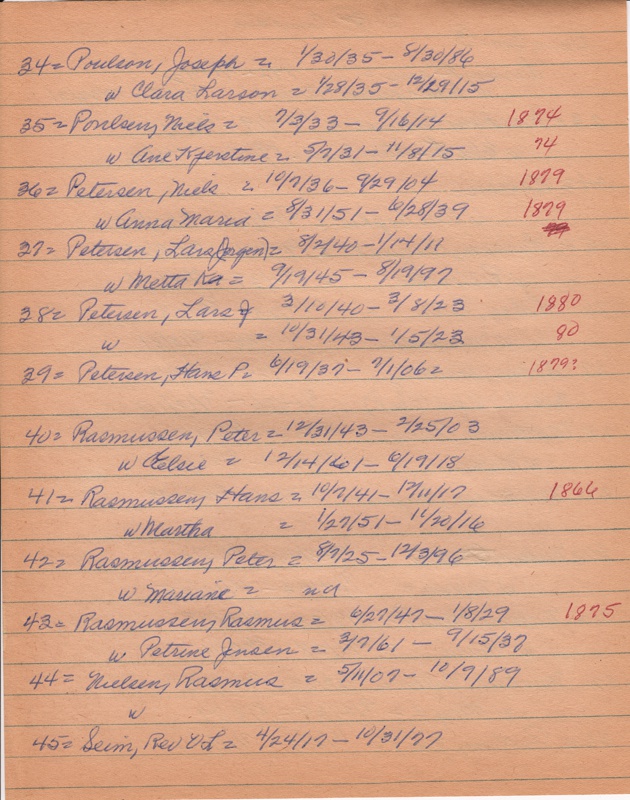 34= Poulson, Joseph = 1/30/35 - 8/30/86
w Clara Larson = 1/28/35 - 12/29/15
35= Poulsen, Niels = 7/3/33 - 9/16/14 1874
w Ane Kjerstine = 5/7/31 - 11/8/15 74
36= Petersen, Niels = 10/7/36 - 9/29/04 1879
w Anna Maria = 8/31/51 - 6/28/39 1879
37= Petersen, Lars (Jorgen) = 8/2/40 - 1/14/11
w Metta Ka = 9/19/45 - 8/19/97
38= Petersen, Lars J 3/10/40 - 3/8/23 1880
w = 10/31/43 - 1/5/23 80
39= Petersen, Hans P= 6/19/37 - 7/1/06 = 1879?
40= Rasmussen, Peter = 12/31/43 - 2/25/03
w Elsie = 12/14/ - 6/19/18
41= Rasmussen, Hans = 10/7/41 - 12/11/17 1866
w Martha = 1/27/51 - 11/20/16
42= Rasmussen, Peter = 8/7/25 - 12/3/96
w Mariane = na
43= Rasmussen, Rasmus = 6/27/47 - 1/8/29 1875
w Petrine Jensen = 3/7/61 - 9/15/37
44= Nielsen, Rasmus = 5/11/07 - 10/9/89
w
45= Seim, Rev O L = 4/24/17 - 10/31/77